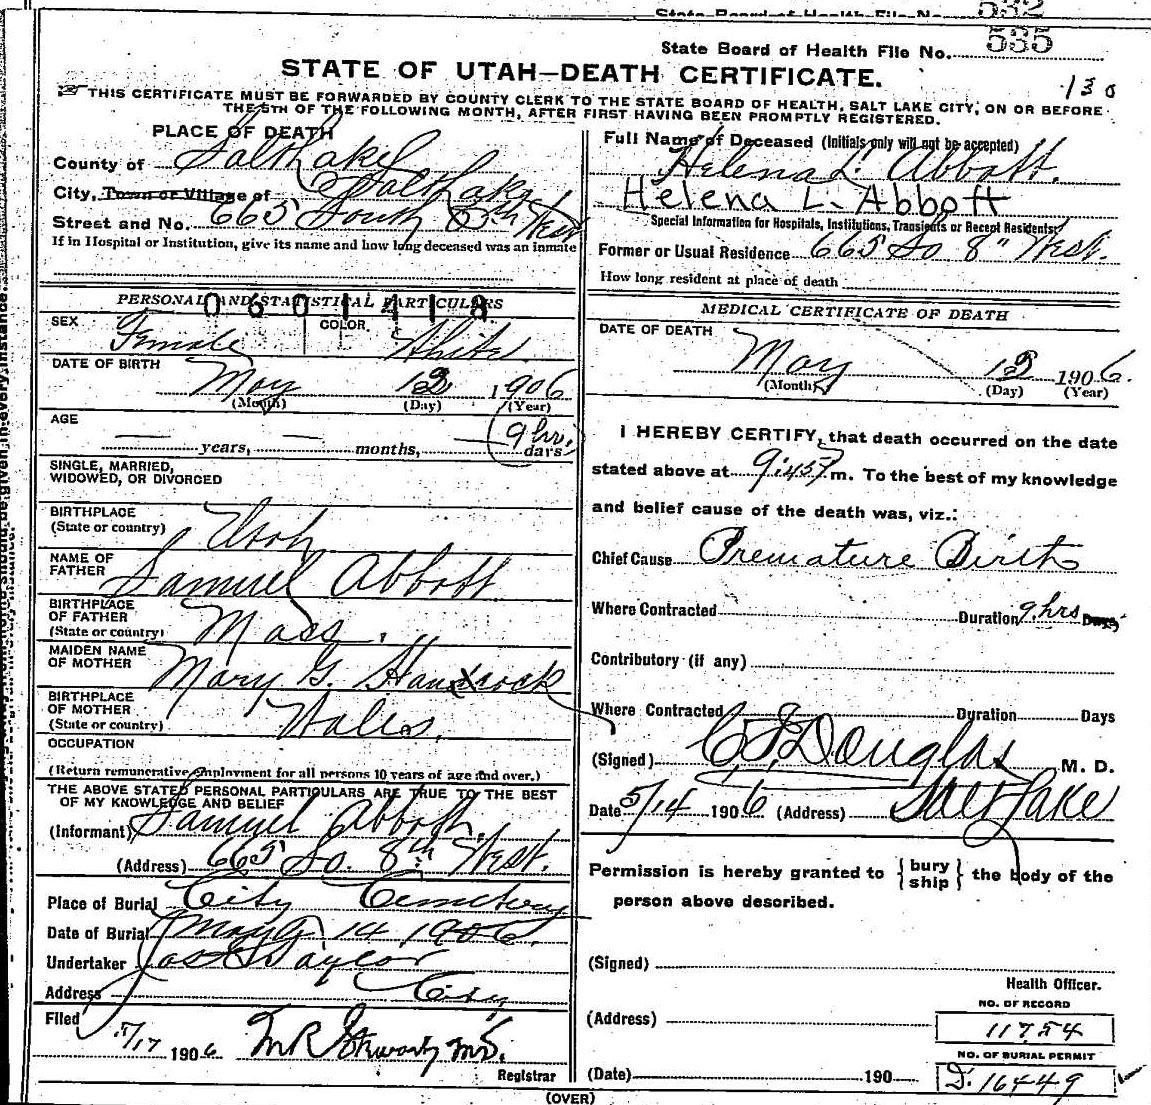 State Board of Health File No. 532
State Board of Health File No. 535
STATE OF UTAH—DEATH CERTIFICATE.
130
THIS CERTIFICATE MUST BE FORWARDED BY COUNTY CLERK TO THE STATE BOARD OF HEALTH, SALT LAKE CITY, ON OR BEFORE
THE 5TH OF THE FOLLOWING MONTH, AFTER FIRST HAVING BEEN PROMPTLY REGISTERED.
PLACE OF DEATH
County of Salt Lake
City, Town or Village of Salt Lake
Street and No. 665 South 8th West
If in Hospital or Institution, give its name and how long deceased was an inmate
PERSONAL AND STATISTICAL PARTICULARS
0601418
SEX Female COLOR White
DATE OF BIRTH May 13 1906
(Month) (Day) (Year)
AGE years, months, 9 hrs. days
SINGLE, MARRIED,
WIDOWED, OR DIVORCED
BIRTHPLACE
(State or country) Utah
NAME OF
FATHER Samuel Abbott
BIRTHPLACE
OF FATHER
(State or country) Mass.
MAIDEN NAME
OF MOTHER Mary G. Hancock
BIRTHPLACE
OF MOTHER
(State or country) Wales.
OCCUPATION
(Return remunerative employment for all persons 10 years of age and over.)
THE ABOVE STATED PERSONAL PARTICULARS ARE TRUE TO THE BEST
OF MY KNOWLEDGE AND BELIEF
(Informant) Samuel Abbott.
(Address) 665 So. 8th West.
Place of Burial City Cemetery
Date of Burial May 14 1906.
Undertaker Jos E Taylor
Address City
Filed
5/17 1906 M R Stewart M.D.
Registrar
Full Name of Deceased (Initials only will not be accepted)
Helena L. Abbott.
Helena L. Abbott
Special Information for Hospitals, Institutions, Transients or Recent Residents:
Former or Usual Residence 665 So 8" West.
How long resident at place of death
MEDICAL CERTIFICATE OF DEATH
DATE OF DEATH
May 13 1906.
(Month) (Day) (Year)
I HEREBY CERTIFY, that death occurred on the date
stated above at 9:45 P m. To the best of my knowledge
and belief cause of the death was, viz.:
Chief Cause Premature Birth
Where Contracted Duration 9 hrs Days
Contributory (if any)
Where Contracted Duration Days
(Signed) C F Douglas M. D.
Date 5/14 1906 (Address) Salt Lake
Permission is hereby granted to {bury ship} the body of the
person above described.
(Signed)
Health Officer.
(Address)
NO. OF RECORD
11754
NO. OF BURIAL PERMIT
D. 16449
(Date) 190
(OVER)